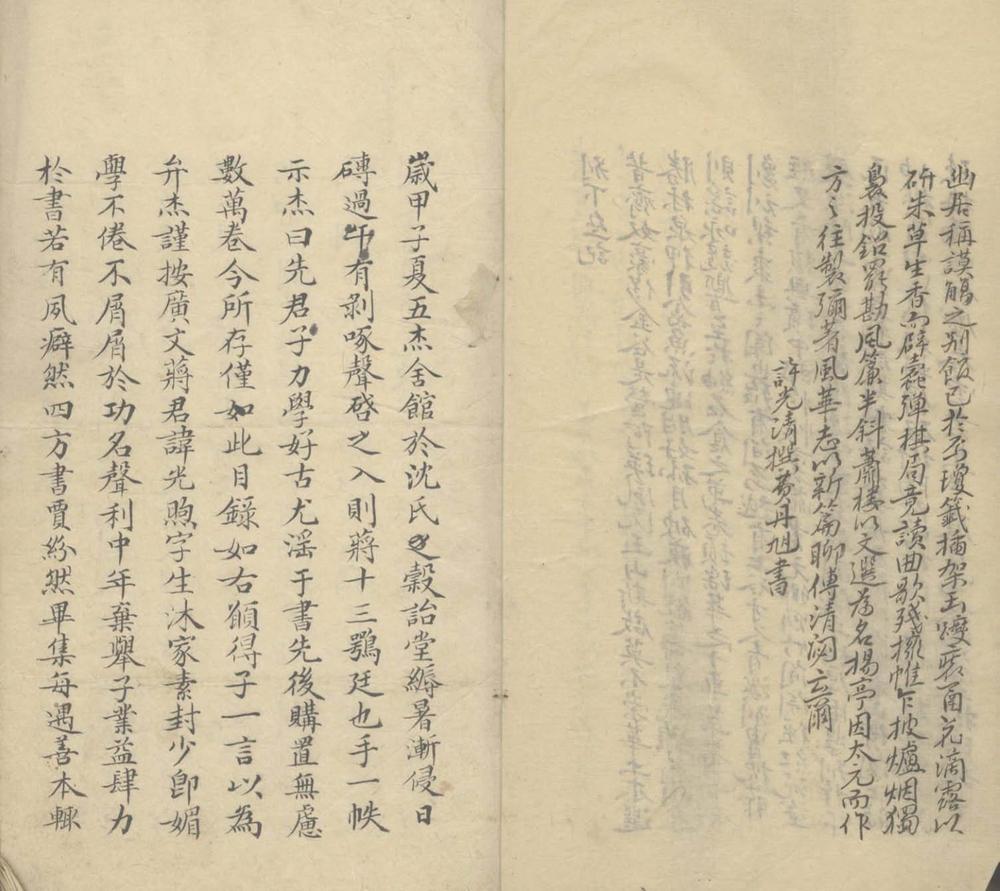 幽居稱謨觴之別館已於香瓊籤插架玉躞裝函花滴露以
研朱草生香而辟蠹彈棋局竟讀曲歌殘攏帷乍披爐烟獨
裊投鉛罷勘風簾半斜蕭樓以文選為名揚亭因太元而作
方之往製彌著風華志以新篇聊傳清閟云爾
許光清撰費丹旭書
歲甲子夏五杰舍館於沈氏之穀詒堂縟暑漸侵日
磚過午有剝啄聲啓之入則蔣十三鶚廷也手一帙
示杰曰先君子力學好古尤滛于書先後購置無慮
數萬卷今所存僅如此目錄如右願得子一言以為
弁杰謹按廣文蔣君諱光煦字生沐家素封少卽媚
學不倦不屑屑於功名聲利中年棄舉子業益肆力
於書若有夙癖然四方書賈紛然畢集每遇善本輒